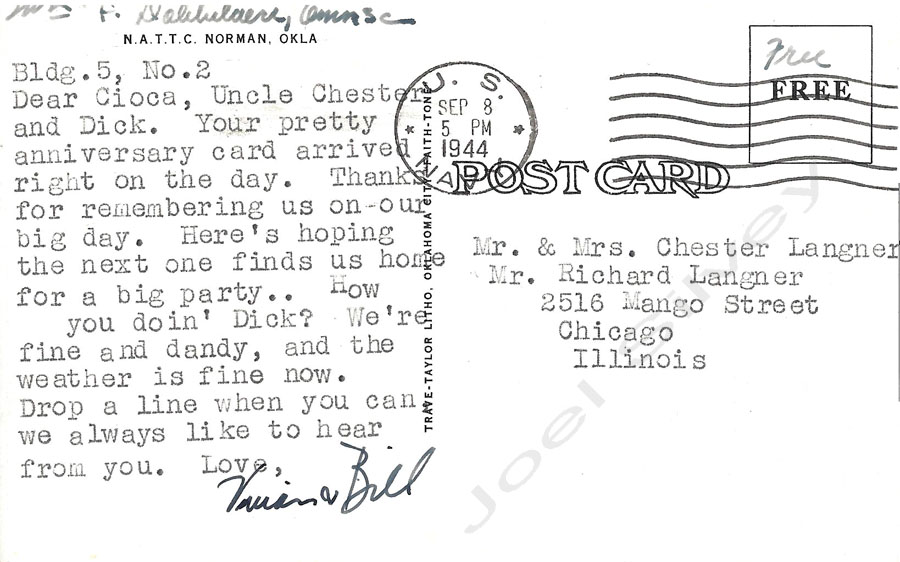 N.A.T.T.C. NORMAN, OKLA
Bldg.5, No.2
Dear Cioca, Uncle Chester
and Dick. Your pretty
anniversary card arrived
right on the day. Thanks
for remembering us on-our
big day. Here's hoping
the next one finds us home
for a big party.. How
you doin' Dick? We're
fine and dandy, and the
weather is fine now.
Drop a line when you can,
we always like to hear
from you. Love,
Bill
TRAVE-TAYLOR LITHO, OKLAHOMA CITY
FAITH-TONE
U. S.
SEP 8
5 PM
1944
NAVY
Free
FREE
POST CARD
Mr. & Mrs. Chester Langner
Mr. Richard Langner
2516 Mango Street
Chicago
Illinois
Joel Givey